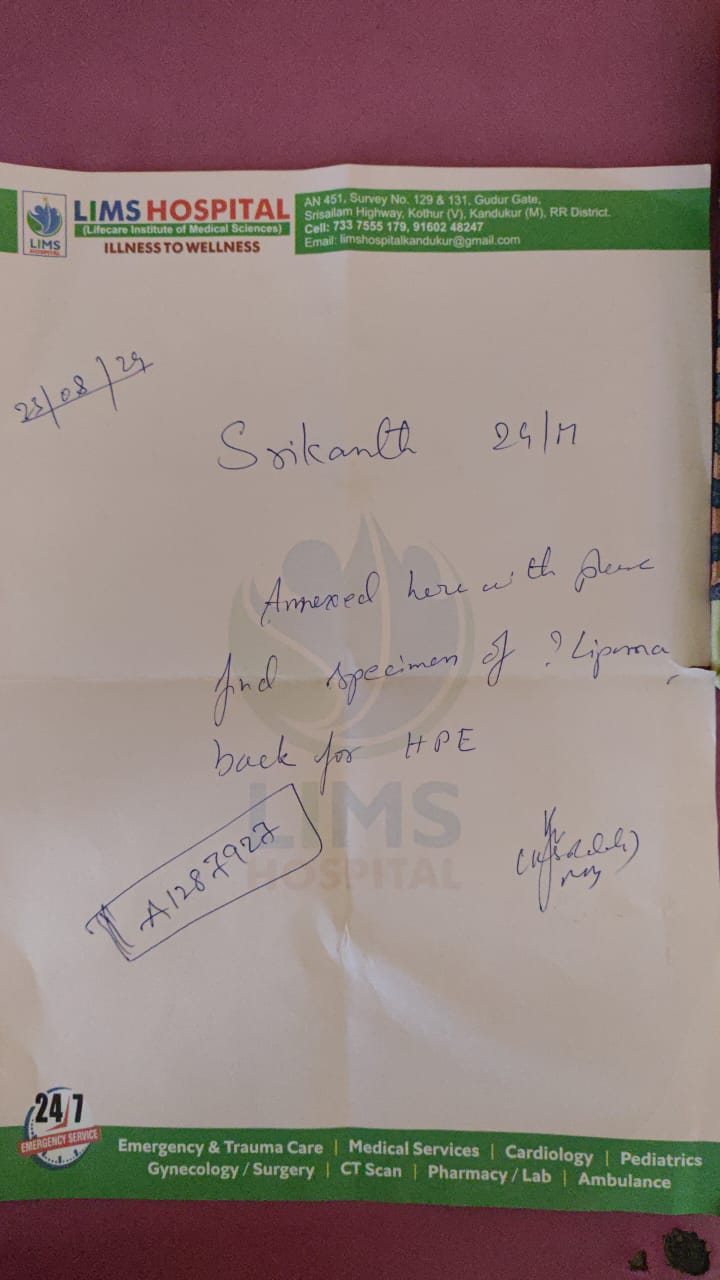 LIMS HOSPITAL
(Lifecare Institute of Medical Sciences)
ILLNESS TO WELLNESS
LIMS
HOSPITAL
AN 451, Survey No. 129 & 131, Gudur Gate,
Srisailam Highway, Kothur (V), Kandukur (M), RR District.
Cell: 733 7555 179, 91602 48247
Email: limshospitalkandukur@gmail.com
23/08/24
Srikanth 24/M
Annexed here with please
find specimen of ? Lipoma
back for HPE
LIMS
HOSPITAL
A1287927
24/7
EMERGENCY SERVICE
Emergency & Trauma Care | Medical Services | Cardiology | Pediatrics
Gynecology / Surgery | CT Scan | Pharmacy / Lab | Ambulance